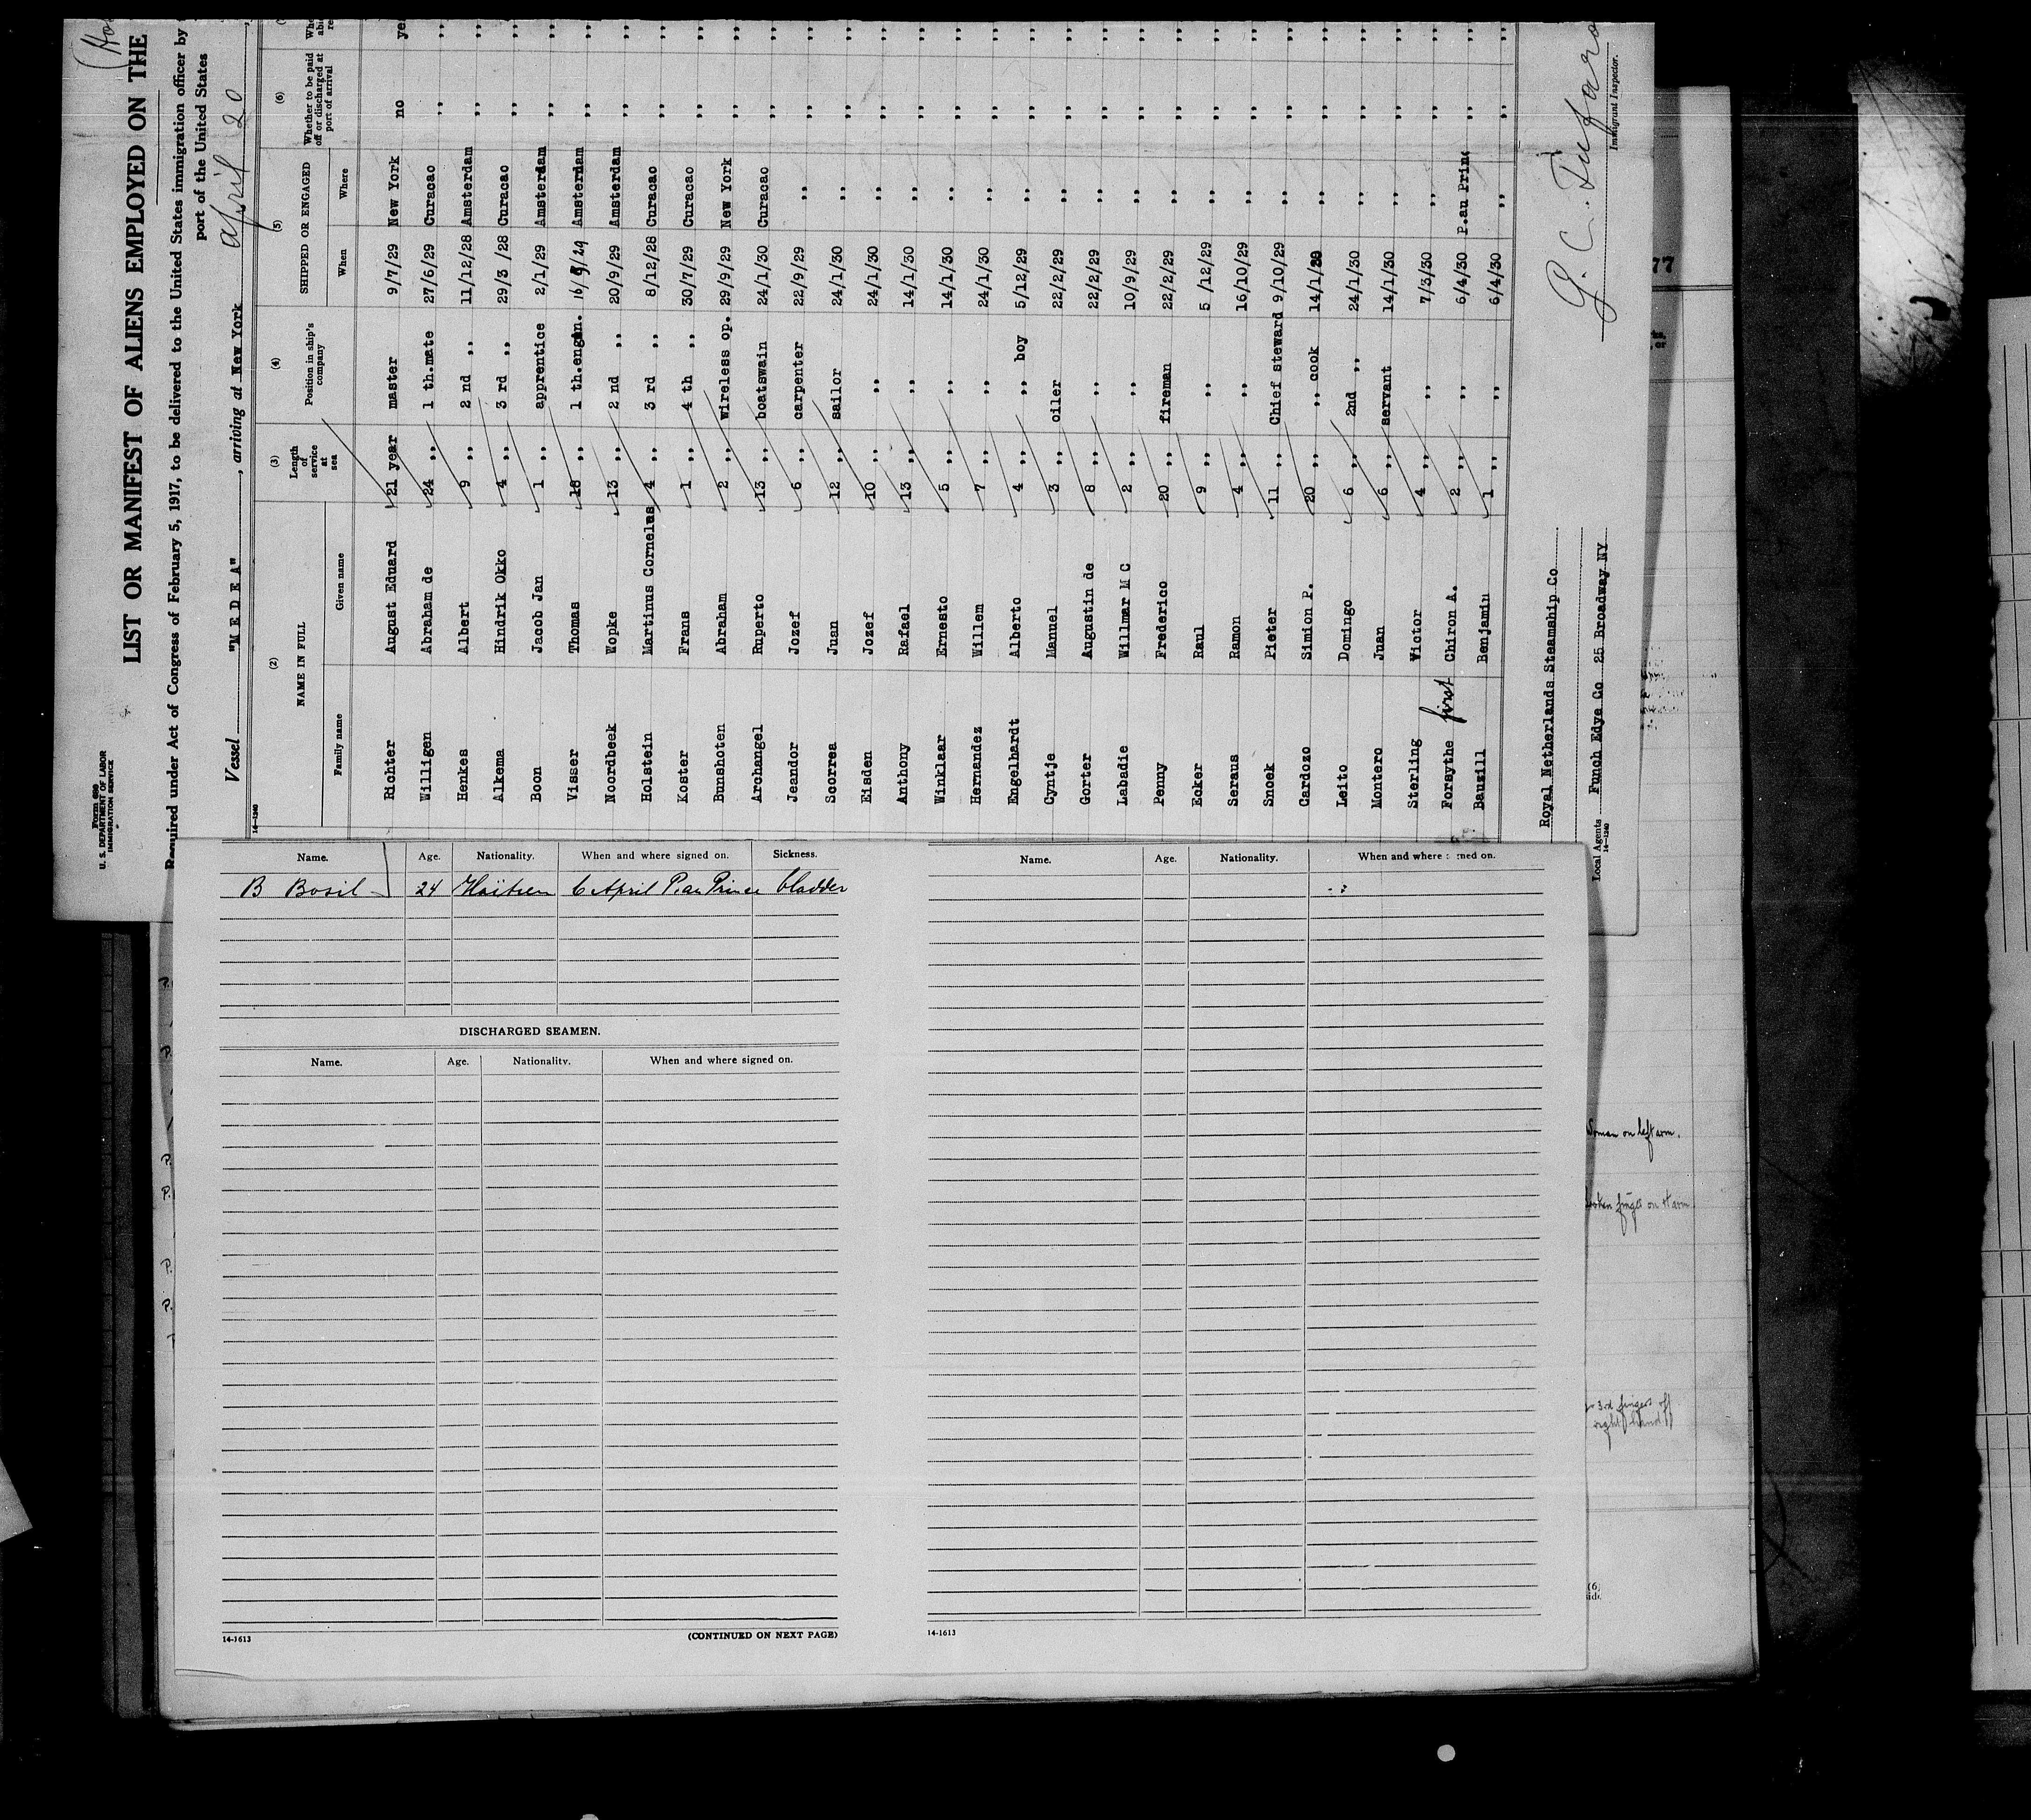 Form 689
U. S. DEPARTMENT OF LABOR
IMMIGRATION SERVICE
LIST OR MANIFEST OF ALIENS EMPLOYED ON THE
Required under Act of Congress of February 5, 1917, to be delivered to the United States immigration officer by
port of the United States
Vessel "M E D E A", arriving at New York April 20
14-1240
(2) (3) (4) (5) (6)
NAME IN FULL Length of service at sea Position in ship's company SHIPPED OR ENGAGED Whether to be paid off or discharged at port of arrival
Family name Given name When Where
Richter August Eduard 21 year master 9/7/29 New York no
Willigen Abraham de 24 ,, 1 th.mate 27/6/29 Curacao ,, ,,
Henkes Albert 9 ,, 2 nd ,, 11/12/28 Amsterdam ,, ,,
Alkema Hindrik Okko 4 ,, 3 rd ,, 29/3 /28 Curacao ,, ,,
Boon Jacob Jan 1 ,, apprentice 2/1/29 Amsterdam ,, ,,
Visser Thomas 18 ,, 1 th.engen. 16/5/29 Amsterdam ,, ,,
Noordbeek Wopke 13 ,, 2 nd ,, 20/9/29 Amsterdam ,, ,,
Holstein Martinus Cornelus 4 ,, 3 rd ,, 8/12/28 Curacao ,, ,,
Koster Frans 1 ,, 4 th ,, 30/7/29 Curacao ,, ,,
Bunshoten Abraham 2 ,, wireless op. 29/9/29 New York ,, ,,
Archangel Ruperto 13 ,, boatswain 24/1/30 Curacao ,, ,,
Jeandor Jozef 6 ,, carpenter 22/9/29 ,, ,, ,,
Scorrea Juan 12 ,, sailor 24/1/30 ,, ,, ,,
Eisden Jozef 10 ,, ,, 24/1/30 ,, ,, ,,
Anthony Rafael 13 ,, ,, 14/1/30 ,, ,, ,,
Winklaar Ernesto 5 ,, ,, 14/1/30 ,, ,, ,,
Hernandez Willem 7 ,, ,, 24/1/30 ,, ,, ,,
Engelhardt Alberto 4 ,, ,, boy 5/12/29 ,, ,, ,,
Cyntje Manuel 3 ,, oiler 22/2/29 ,, ,, ,,
Gorter Augustin de 8 ,, ,, 22/2/29 ,, ,, ,,
Labadie Willmar M C 2 ,, ,, 10/9/29 ,, ,, ,,
Penny Frederico 20 ,, fireman 22/2/29 ,, ,, ,,
Ecker Raul 9 ,, ,, 5 /12/29 ,, ,, ,,
Seraus Ramon 4 ,, ,, 16/10/29 ,, ,, ,,
Snoek Pieter 11 ,, Chief steward 9/10/29 ,, ,, ,,
Cardozo Simion P. 20 ,, ,, cook 14/1/30 ,, ,, ,,
Leito Domingo 6 ,, 2nd ,, 24/1/30 ,, ,, ,,
Montero Juan 6 ,, servant 14/1/30 ,, ,, ,,
Sterling Victor 4 ,, ,, 7/3/30 ,, ,, ,,
Forsythe first Chiron A. 2 ,, ,, 6/4/30 P.au Prin ,, ,,
Bauzill Benjamin 1 ,, ,, 6/4/30 ,, ,, ,,
Royal Netherlands Steamship Co
Local Agents Funch Edye Co 25 Broadway NY
14-1240
Immigrant Inspector.
77
Name. Age. Nationality. When and where signed on. Sickness.
B Bosil 24 Haïtien 6 April P.au Prince bladder
DISCHARGED SEAMEN.
Name. Age. Nationality. When and where signed on.
14-1613 (CONTINUED ON NEXT PAGE)
Name. Age. Nationality. When and where signed on.
14-1613
Woman on left arm.
3rd fingers off
right hand